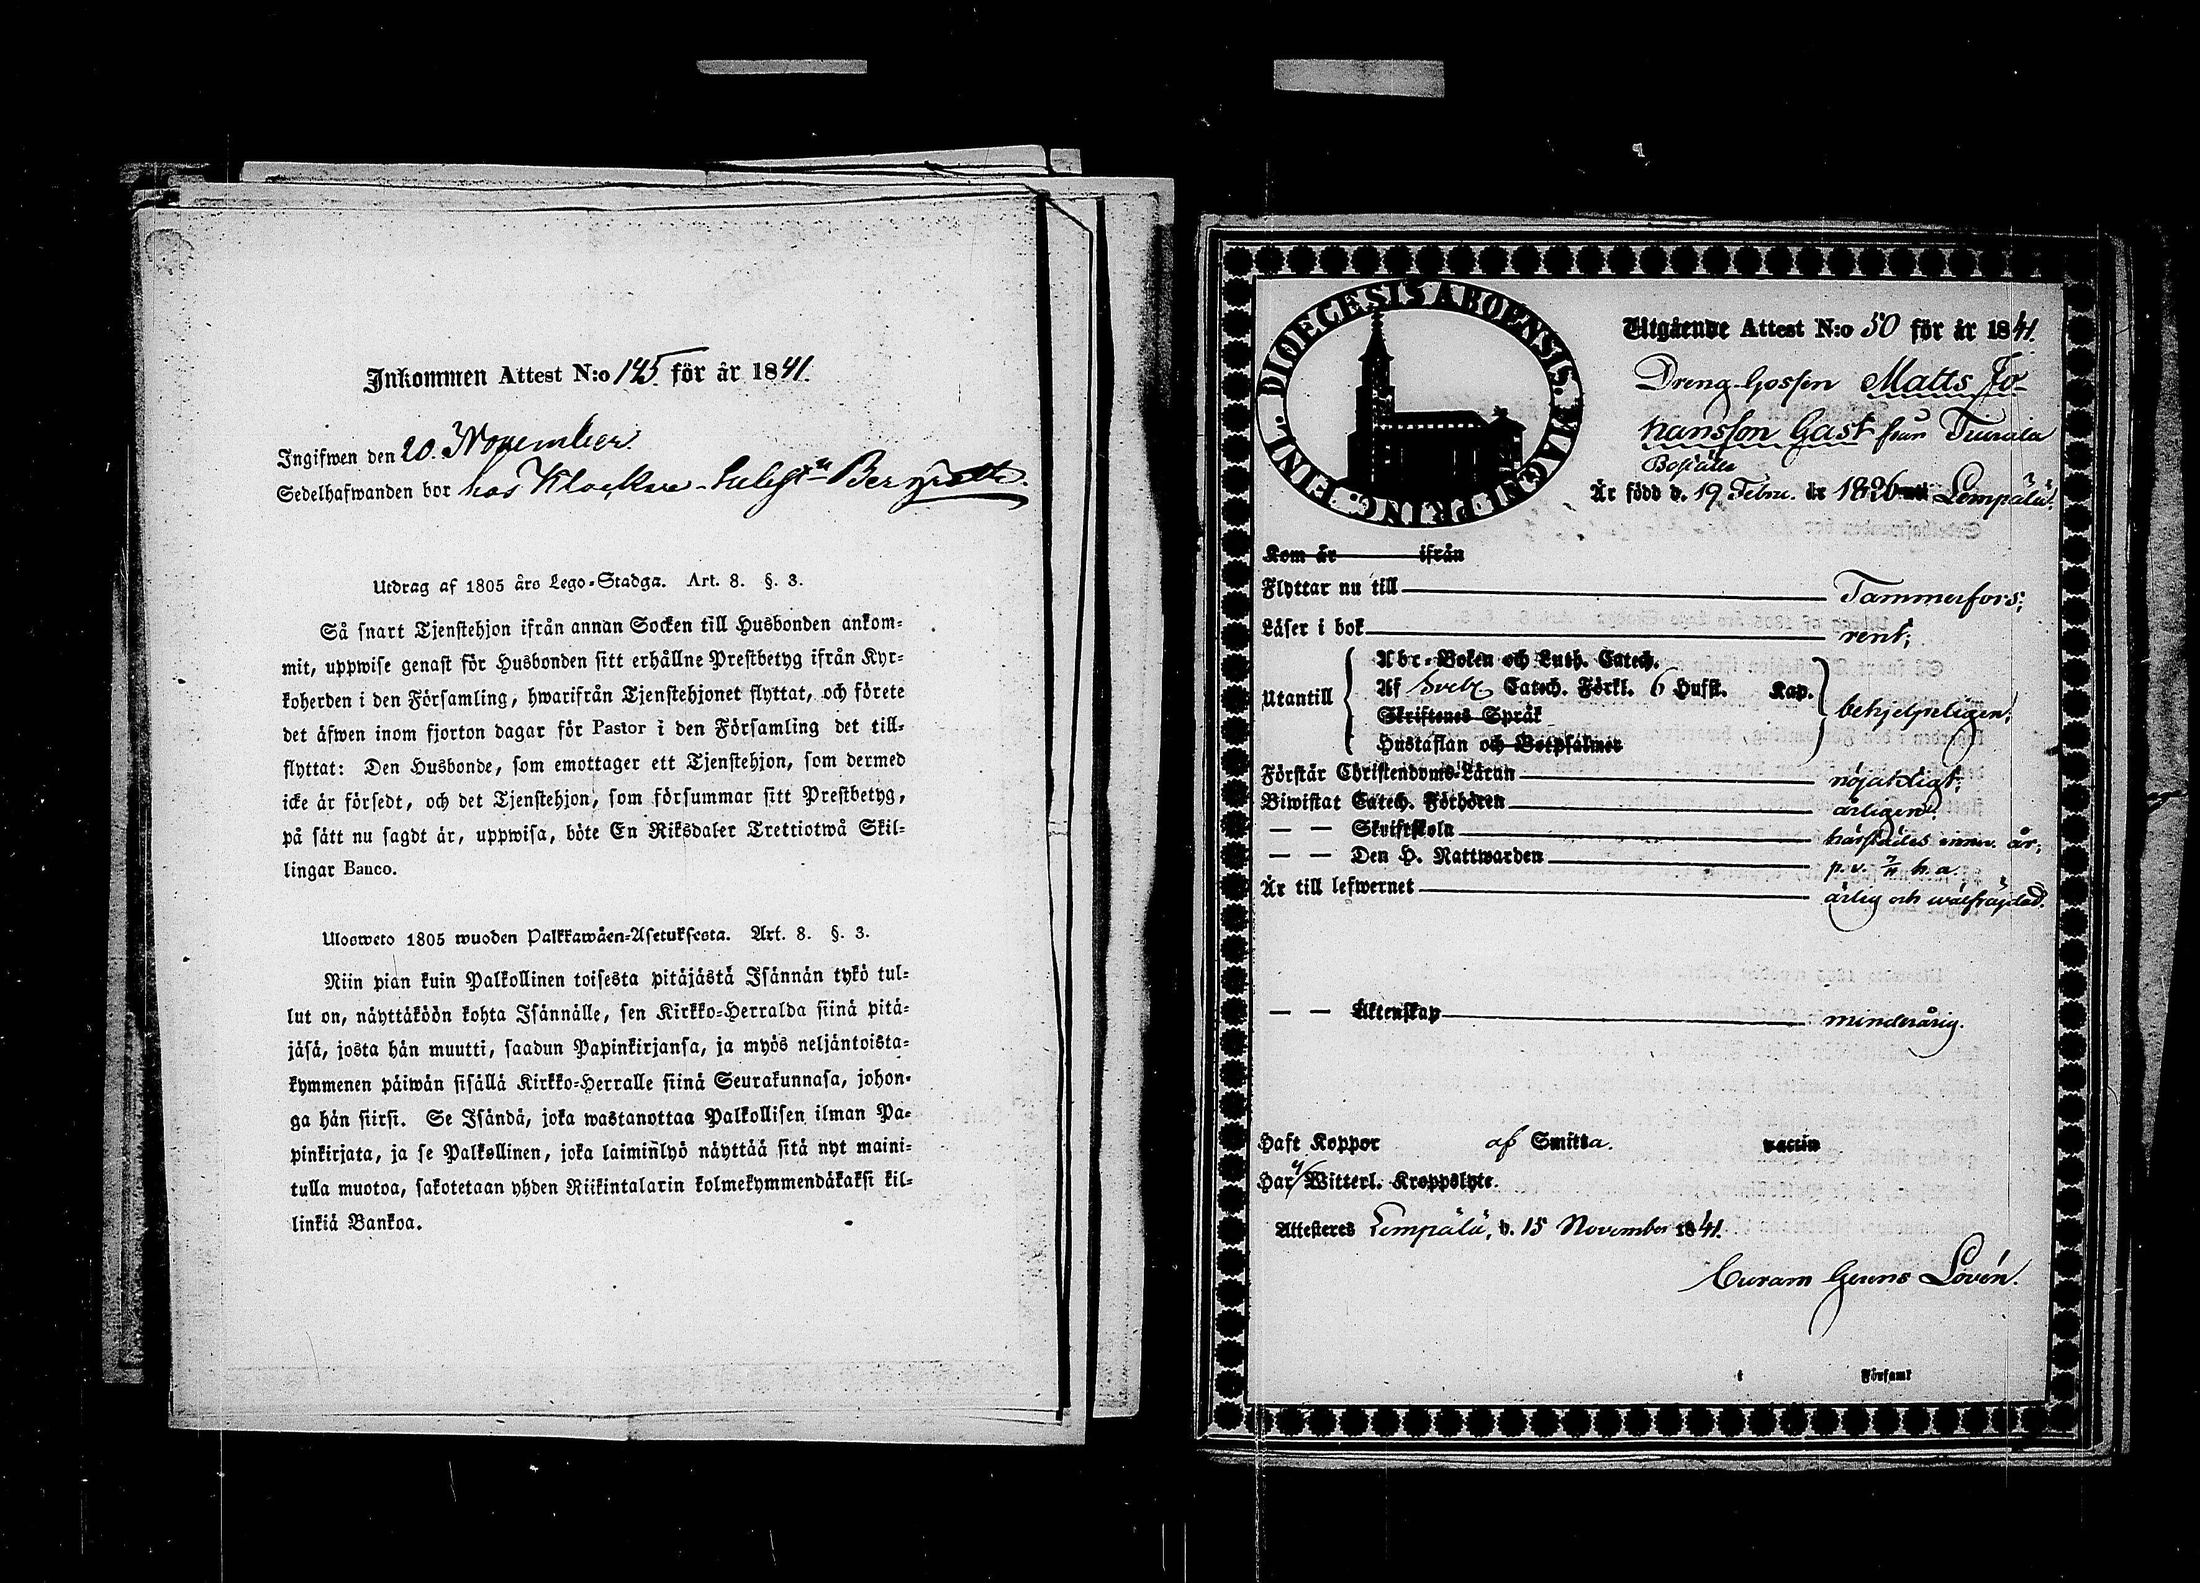 Inkommen Attest N:o 145. för år 1841.
Ingifwen den 20. November.
Sedelhafwanden bor hos Klockare
Utdrag af 1805 års Lego-Stadga. Art. 8. §. 3.
Så snart Tjenstehjon ifrån annan Socken till Husbonden ankom-
mit, uppwise genast för Husbonden sitt erhållne Prestbetyg ifrån Kyr-
koherden i den Församling, hwarifrån Tjenstehjonet flyttat, och förete
det äfwen inom fjorton dagar för Pastor i den Församling det till-
flyttat: Den Husbonde, som emottager ett Tjenstehjon, som dermed
icke är försedt, och det Tjenstehjon, som försummar sitt Prestbetyg,
på sätt nu sagdt är, uppwisa, böte En Riksdaler Trettiotwå Skil-
lingar Banco.
Ulosweto 1805 wuoden Palkkawäen-Asetuksesta. Art. 8. §. 3.
Niin pian kuin Palkollinen toisesta pitäjästä Isännän tykö tul-
lut on, näyttäköön kohta Isännälle, sen Kirkko-Herralda siinä pitä-
jäsä, josta hän muutti, saadun Papinkirjansa, ja myös neljäntoista-
kymmenen päiwän sisällä Kirkko-Herralle siinä Seurakunnasa, johon-
ga hän siirsi. Se Isändä, joka wastanottaa Palkollisen ilman Pa-
pinkirjata, ja se Palkollinen, joka laiminlyö näyttää sitä nyt maini-
tulla muotoa, sakotetaan yhden Riikintalarin kolmekymmendäkaksi kil-
linkiä Bankoa.
FINL. DIOECESIS ABOENSIS. MAGNI PRING.
Utgående Attest N:o 50 för år 1841.
Dreng-Gossen Matts Jo-
hansson Gast från Turala
Boställe
Är född d. 19 Febru. år 1826 uti Lempälä.
Kom år ifrån
Flyttar nu till Tammerfors;
Läser i bok rent;
Utantill
Abc-Boken och Luth. Catech.
Af Sveb. Catech. Förkl. 6 Hufst. Kap.
Skriftenes Språk
Hustaflan och Botpsalmer
behjelpeligen;
Förstår Christendoms-Läran nöjaktligt;
Biwistat Catech. Förhören årligen;
— — Skriftskola härstädes innev. år;
— — Den H. Nattwarden p. v. 7/11 h. a.
Är till lefwernet ärlig och wälfrägdad.
— — Äktenskap minderårig.
Haft Koppor af Smitta. vaccin
Har Witterl. Kroppslyte.
Attesteres Lempälä, d. 15 November 1841.
Curam Gerens Lovén.
i Församl